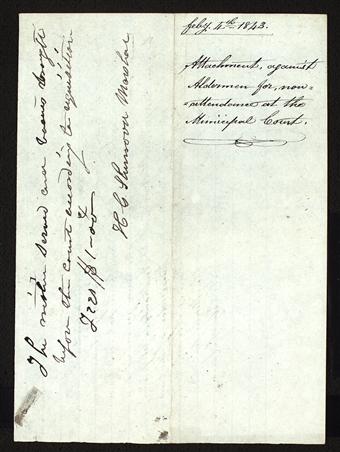 feby. 4th 1843.
Attachment, against
Aldermen for, non=
=attendance at the
Municipal Court.
The within served and been brought
before the court according to requisition
Fees $1-00
H C Marshal